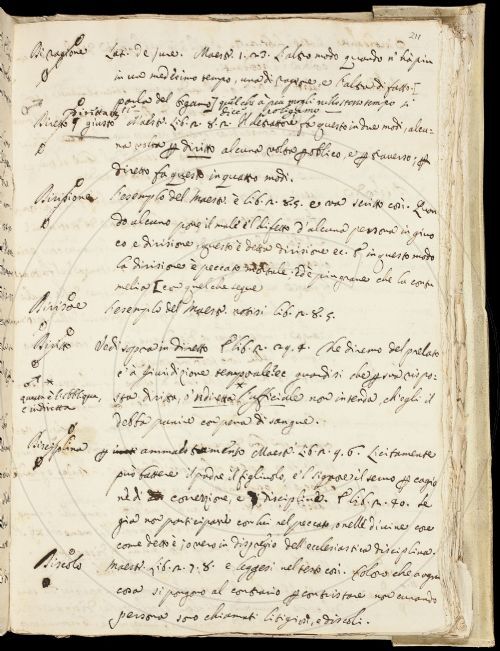 211
Di ragione Lat. de jure. Maest. 1. 23. L'altro modo quando n' hà più
in un medesimo tempo, una di ragione, e l'altra di fatto.
parla del
Diretto p giusto Maest. lib. 2. 8. 2. fa questo in due modi, alcu-
na volta p diritto alcuna volta p oblico, e p traverso; p
diretto fa questo in quattro modi.
Divisione L'esempio del Maestr. è lib. 2. 8.5. e va scritto così. Quan-
do alcuno pone il male è 'l difetto d'alcuna persona in giuo
co e divisione, questo è detta divisione ec. E in questo modo
la divisione è peccato mortale. Ed è più grave che la contu
melia con quel che segue
Divisore L'esempio del Maest. notisi lib. 2. 8.5.
Divito Vedi sopra in diretto E lib. 2. 29. 4. Che diremo del prelato
e a giuridizione temporale ec quando si che p sua rispo-
sta, diritta, o indiretta l'ufficiale non intenda, ch'egli il
debba punire con pena di sangue.
quivi è l'obblique,
e indiretta
Disciplina p ammaestramento Maest. lib. 2. 9. 6. Licitamente
può battere il padre, il figliuolo, e 'l signore il servo p cagio
ne di correzione, e disciplina. E lib. 2. 40. Se
già non participare con lui nel peccato, o nelle divine cose
come detto è; ovvero in dispregio dell'ecclesiastica disciplina.
Discolo Maestr. lib. 2. 7. 8. e leggesi nel testo così. Coloro che a ogni
cosa si pongono al contrario p contristare non curando
persona sono chiamati litigiosi, e discoli.